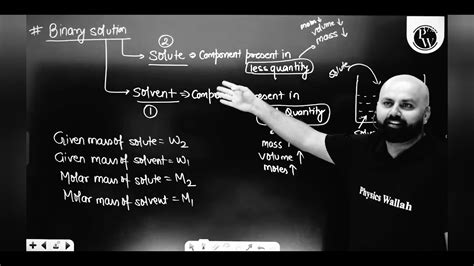 # Binary solution
② Solute ⇒ Component present in
less quantity
mom ↓
volume ↓
mass ↓
Solvent ⇒ Compo present in
①
Quantity
mass ↑
volume ↑
moles ↑
Solute
Sol
Given mass of solute = W2
Given mass of solvent = W1
Molar mass of solute = M2
Molar mass of solvent = M1
PW
Physics Wallah